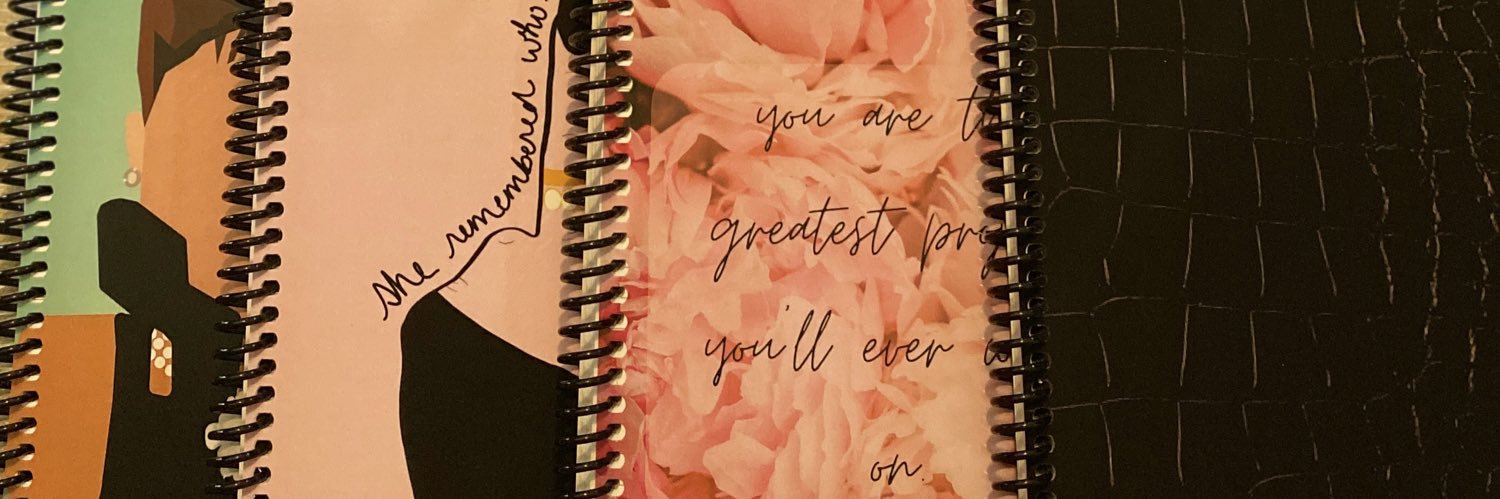 she remembered who
you are
greatest
you'll ever
on.